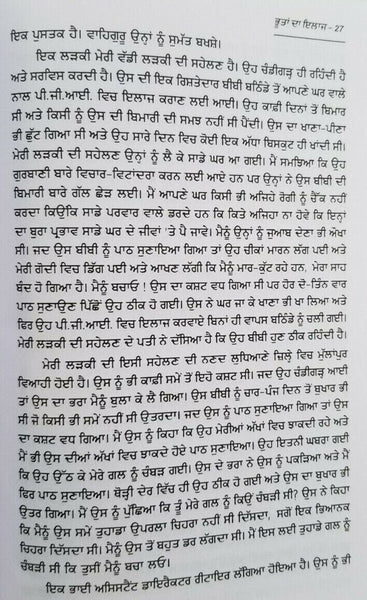 ਭੂਤਾਂ ਦਾ ਇਲਾਜ - 27
ਇਕ ਪੁਸਤਕ ਹੈ। ਵਾਹਿਗੁਰੂ ਉਨ੍ਹਾਂ ਨੂੰ ਸੁਮੱਤ ਬਖਸ਼ੇ।
ਇਕ ਲੜਕੀ ਮੇਰੀ ਵੱਡੀ ਲੜਕੀ ਦੀ ਸਹੇਲਣ ਹੈ। ਉਹ ਚੰਡੀਗੜ੍ਹ ਹੀ ਰਹਿੰਦੀ ਹੈ
ਅਤੇ ਸਰਵਿਸ ਕਰਦੀ ਹੈ। ਉਸ ਦੀ ਇਕ ਰਿਸ਼ਤੇਦਾਰ ਬੀਬੀ ਬਠਿੰਡੇ ਤੋਂ ਆਪਣੇ ਘਰ ਵਾਲੇ
ਨਾਲ ਪੀ.ਜੀ.ਆਈ. ਵਿਚ ਇਲਾਜ ਕਰਾਣ ਲਈ ਆਈ। ਉਹ ਕਾਫ਼ੀ ਦਿਨਾਂ ਤੋਂ ਬਿਮਾਰ
ਸੀ ਅਤੇ ਕਿਸੀ ਨੂੰ ਉਸ ਦੀ ਬਿਮਾਰੀ ਦੀ ਸਮਝ ਨਹੀਂ ਸੀ ਪੈਂਦੀ। ਉਸ ਦਾ ਖਾਣਾ-ਪੀਣਾ
ਵੀ ਛੁੱਟ ਗਿਆ ਸੀ ਅਤੇ ਉਹ ਸਾਰੇ ਦਿਨ ਵਿਚ ਕੋਈ ਇਕ ਅੱਧਾ ਬਿਸਕੁਟ ਹੀ ਖਾਂਦੀ ਸੀ।
ਮੇਰੀ ਲੜਕੀ ਦੀ ਸਹੇਲਣ ਉਨ੍ਹਾਂ ਨੂੰ ਲੈ ਕੇ ਸਾਡੇ ਘਰ ਆ ਗਈ। ਮੈਂ ਸਮਝਿਆ ਕਿ ਉਹ
ਗੁਰਬਾਣੀ ਬਾਰੇ ਵਿਚਾਰ-ਵਿਟਾਂਦਰਾ ਕਰਨ ਲਈ ਆਏ ਹਨ ਪਰ ਉਨ੍ਹਾਂ ਨੇ ਉਸ ਬੀਬੀ ਦੀ
ਬਿਮਾਰੀ ਬਾਰੇ ਗੱਲ ਛੇੜ ਲਈ। ਮੈਂ ਆਪਣੇ ਘਰ ਕਿਸੀ ਵੀ ਅਜਿਹੇ ਰੋਗੀ ਨੂੰ ਚੈੱਕ ਨਹੀਂ
ਕਰਦਾ ਕਿਉਂਕਿ ਸਾਡੇ ਪਰਵਾਰ ਵਾਲੇ ਡਰਦੇ ਹਨ ਕਿ ਕਿਤੇ ਅਜਿਹਾ ਨਾ ਹੋਵੇ ਕਿ ਇਨ੍ਹਾਂ
ਦਾ ਬੁਰਾ ਪ੍ਰਭਾਵ ਸਾਡੇ ਘਰ ਦੇ ਜੀਵਾਂ 'ਤੇ ਪੈ ਜਾਵੇ। ਮੈਨੂੰ ਉਨ੍ਹਾਂ ਨੂੰ ਜੁਆਬ ਦੇਣਾ ਵੀ ਔਖਾ
ਸੀ। ਜਦ ਉਸ ਬੀਬੀ ਨੂੰ ਪਾਠ ਸੁਣਾਇਆ ਗਿਆ ਤਾਂ ਉਹ ਚੀਕਾਂ ਮਾਰਨ ਲੱਗ ਪਈ ਅਤੇ
ਮੇਰੀ ਗੋਦੀ ਵਿਚ ਡਿੱਗ ਪਈ ਅਤੇ ਆਖਣ ਲੱਗੀ ਕਿ ਮੈਨੂੰ ਮਾਰ-ਕੁੱਟ ਰਹੇ ਹਨ, ਮੇਰਾ ਸਾਹ
ਬੰਦ ਹੋ ਗਿਆ ਹੈ। ਮੈਨੂੰ ਬਚਾਓ ! ਉਸ ਦਾ ਕਸ਼ਟ ਵਧ ਗਿਆ ਸੀ ਪਰ ਹੋਰ ਦੋ-ਤਿੰਨ ਵਾਰ
ਪਾਠ ਸੁਣਾਉਣ ਪਿੱਛੋਂ ਉਹ ਠੀਕ ਹੋ ਗਈ। ਉਸ ਨੇ ਘਰ ਜਾ ਕੇ ਖਾਣਾ ਵੀ ਖਾ ਲਿਆ ਅਤੇ
ਫਿਰ ਉਹ ਪੀ.ਜੀ.ਆਈ. ਵਿਚ ਇਲਾਜ ਕਰਵਾਏ ਬਿਨਾਂ ਹੀ ਵਾਪਸ ਬਠਿੰਡੇ ਨੂੰ ਚਲੀ ਗਈ।
ਮੇਰੀ ਲੜਕੀ ਦੀ ਸਹੇਲਣ ਦੇ ਪਤੀ ਨੇ ਦੱਸਿਆ ਹੈ ਕਿ ਉਹ ਬੀਬੀ ਹੁਣ ਠੀਕ ਰਹਿੰਦੀ ਹੈ।
ਮੇਰੀ ਲੜਕੀ ਦੀ ਇਸੀ ਸਹੇਲਣ ਦੀ ਨਣਦ ਲੁਧਿਆਣੇ ਜ਼ਿਲ੍ਹੇ ਵਿਚ ਮੁੱਲਾਂਪੁਰ
ਵਿਆਹੀ ਹੋਈ ਹੈ। ਉਸ ਨੂੰ ਵੀ ਕਾਫ਼ੀ ਸਮੇਂ ਤੋਂ ਇਹੋ ਕਸ਼ਟ ਸੀ। ਜਦ ਉਹ ਚੰਡੀਗੜ੍ਹ ਆਈ
ਤਾਂ ਉਸ ਦਾ ਭਰਾ ਮੈਨੂੰ ਬੁਲਾ ਕੇ ਲੈ ਗਿਆ। ਉਸ ਬੀਬੀ ਨੂੰ ਚਾਰ-ਪੰਜ ਦਿਨ ਤੋਂ ਬੁਖਾਰ ਵੀ
ਸੀ ਜੋ ਕਿਸੀ ਵੀ ਸਮੇਂ ਨਹੀਂ ਸੀ ਉਤਰਦਾ। ਜਦ ਉਸ ਨੂੰ ਪਾਠ ਸੁਣਾਇਆ ਗਿਆ ਤਾਂ ਉਸ
ਦਾ ਕਸ਼ਟ ਵਧ ਗਿਆ। ਮੈਂ ਉਸ ਨੂੰ ਕਿਹਾ ਕਿ ਉਹ ਮੇਰੀਆਂ ਅੱਖਾਂ ਵਿਚ ਝਾਕਦੀ ਰਹੇ ਅਤੇ
ਮੈਂ ਵੀ ਉਸ ਦੀਆਂ ਅੱਖਾਂ ਵਿਚ ਝਾਕਦੇ ਹੋਏ ਪਾਠ ਸੁਣਾਇਆ। ਉਹ ਇਤਨੀ ਘਬਰਾ ਗਈ
ਕਿ ਉਹ ਉੱਠ ਕੇ ਮੇਰੇ ਗਲ ਨੂੰ ਚੰਬੜ ਗਈ। ਉਸ ਦੇ ਭਰਾ ਨੇ ਉਸ ਨੂੰ ਪਕੜਿਆ ਅਤੇ ਮੈਂ
ਫਿਰ ਪਾਠ ਸੁਣਾਇਆ। ਥੋੜੀ ਦੇਰ ਵਿੱਚ ਹੀ ਉਹ ਠੀਕ ਹੋ ਗਈ ਅਤੇ ਉਸ ਦਾ ਬੁਖਾਰ ਵੀ
ਉਤਰ ਗਿਆ। ਮੈਂ ਉਸ ਨੂੰ ਪੁੱਛਿਆ ਕਿ ਤੂੰ ਮੇਰੇ ਗਲ ਨੂੰ ਕਿਉਂ ਚੰਬੜੀ ਸੀ? ਉਸ ਨੇ ਕਿਹਾ
ਕਿ ਮੈਨੂੰ ਉਸ ਸਮੇਂ ਤੁਹਾਡਾ ਉਪਰਲਾ ਚਿਹਰਾ ਨਹੀਂ ਸੀ ਦਿੱਸਦਾ, ਸਗੋਂ ਇਕ ਭਿਆਨਕ
ਚਿਹਰਾ ਦਿੱਸਦਾ ਸੀ। ਮੈਨੂੰ ਉਸ ਤੋਂ ਬਹੁਤ ਡਰ ਲੱਗਦਾ ਸੀ। ਮੈਂ ਇਸ ਲਈ ਤੁਹਾਡੇ ਗਲ ਨੂੰ
ਚੰਬੜੀ ਸੀ ਕਿ ਤੁਸੀਂ ਮੈਨੂੰ ਬਚਾ ਲਓ।
ਇਕ ਭਾਈ ਅਸਿਸਟੈਂਟ ਡਾਇਰੈਕਟਰ ਰੀਟਾਇਰ ਲੱਗਿਆ ਹੋਇਆ ਹੈ। ਉਸ ਨੂੰ ਵੀ